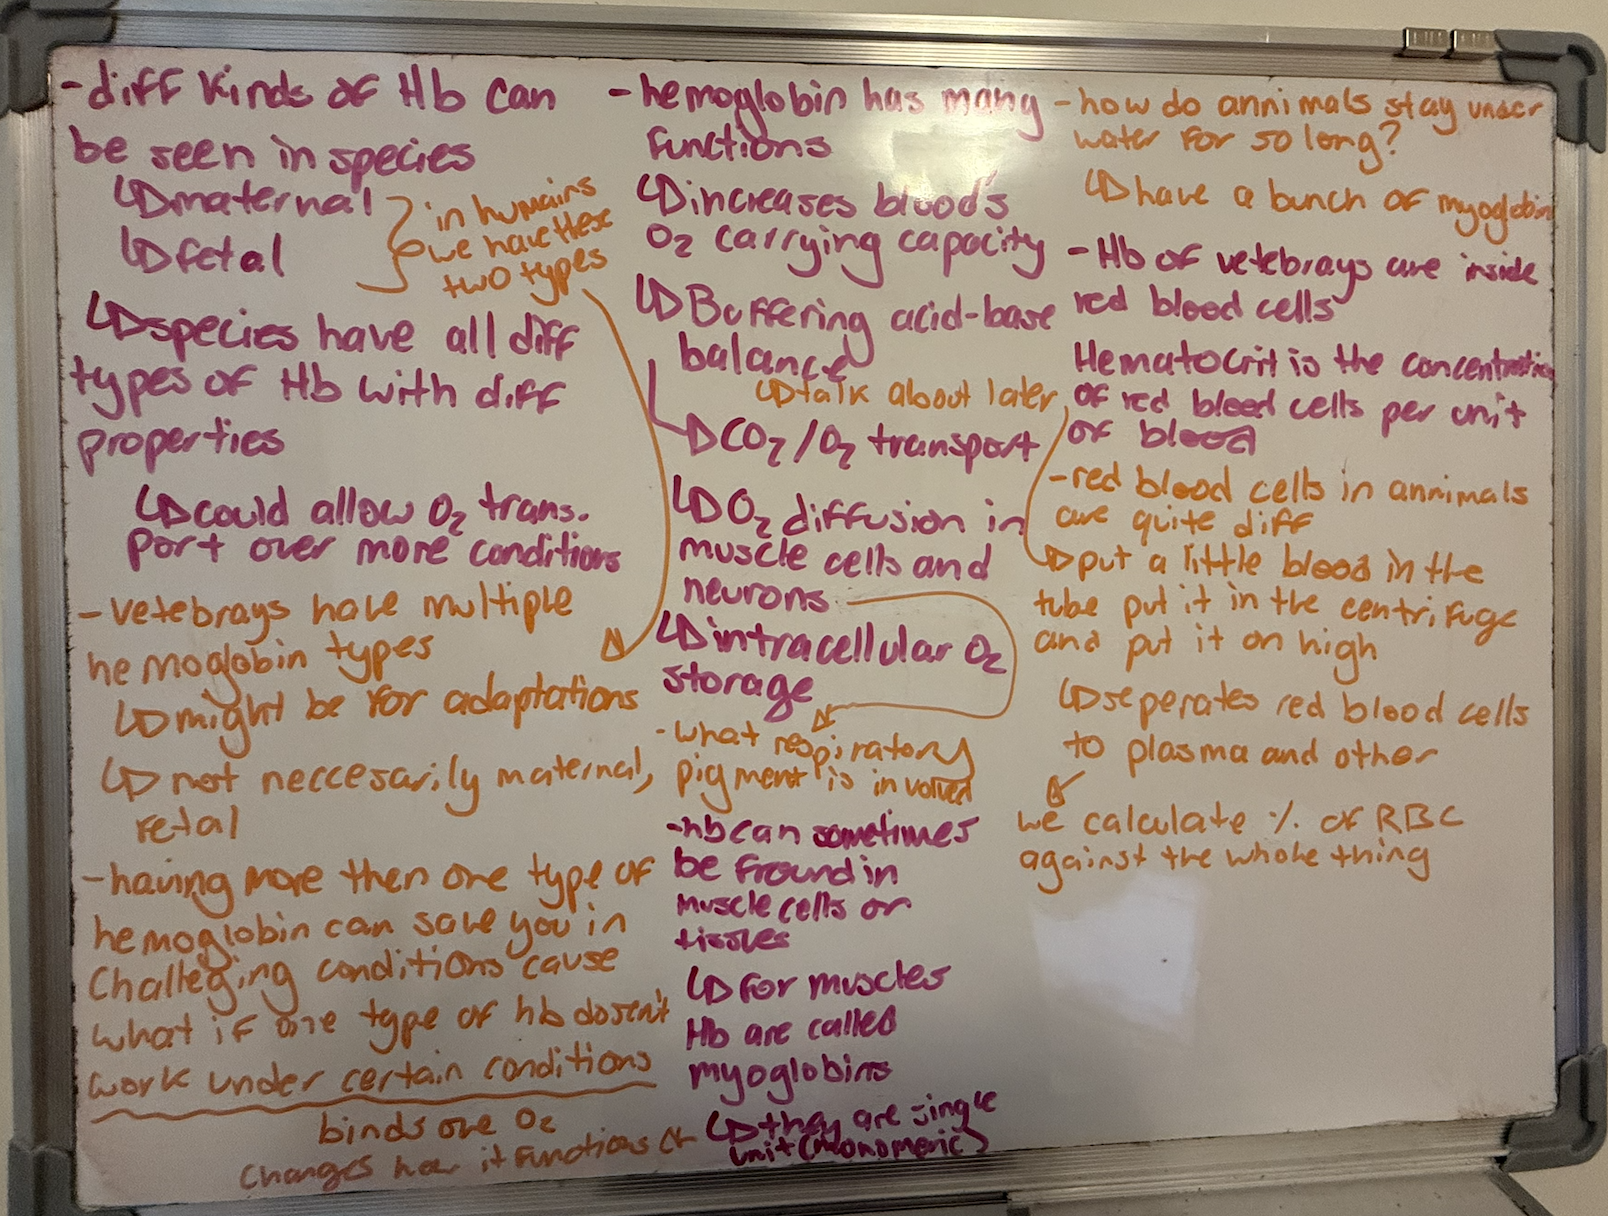 -diff kinds of Hb can
be seen in species
↳maternal
↳fetal
in humans
we have these
two types
↳species have all diff
types of Hb with diff
properties
↳could allow O₂ trans.
port over more conditions
-vetebrays have multiple
hemoglobin types
↳might be for adaptations
↳not neccesarily maternal,
fetal
-having more then one type of
hemoglobin can save you in
Challeging conditions cause
what if one type of hb dosen't
work under certain conditions
binds one O₂
changes how it functions
-hemoglobin has many
functions
↳increases blood's
O₂ carrying capacity
↳Buffering acid-base
balance
↳talk about later
↳CO₂/O₂ transport
↳O₂ diffusion in
muscle cells and
neurons
↳intracellular O₂
storage
-what respiratory
pigment is involved
-hb can sometimes
be fround in
muscle cells or
tissues
↳for muscles
Hb are called
myoglobins
↳they are single
unit (monomeric)
-how do annimals stay under
water for so long?
↳have a bunch of myoglobin
-Hb of vetebrays are inside
red blood cells
Hematocrit is the concentration
of red blood cells per unit
of blood
-red blood cells in annimals
are quite diff
↳put a little blood in the
tube put it in the centrifuge
and put it on high
↳seperates red blood cells
to plasma and other
we calculate % of RBC
against the whole thing